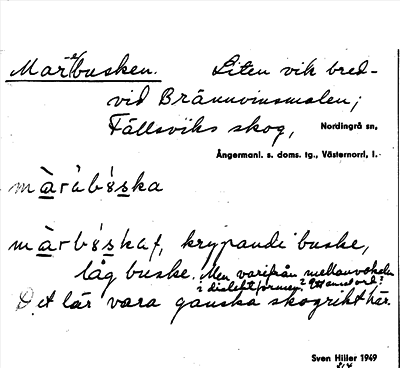 Mar(e)busken. Liten vik bred-
vid Brännvinsmalen;
Fällsviks skog, Nordingrå sn,
Ångermanl. s. doms. tg., Västernorrl. l.
màrabúska
màrbúskaſ, krypande buske,
låg buske. Men varifrån mellanvokalen
i dialektformen? Ett annat ord?
Det lär vara ganska skogrikt här.
Sven Hiller 1949